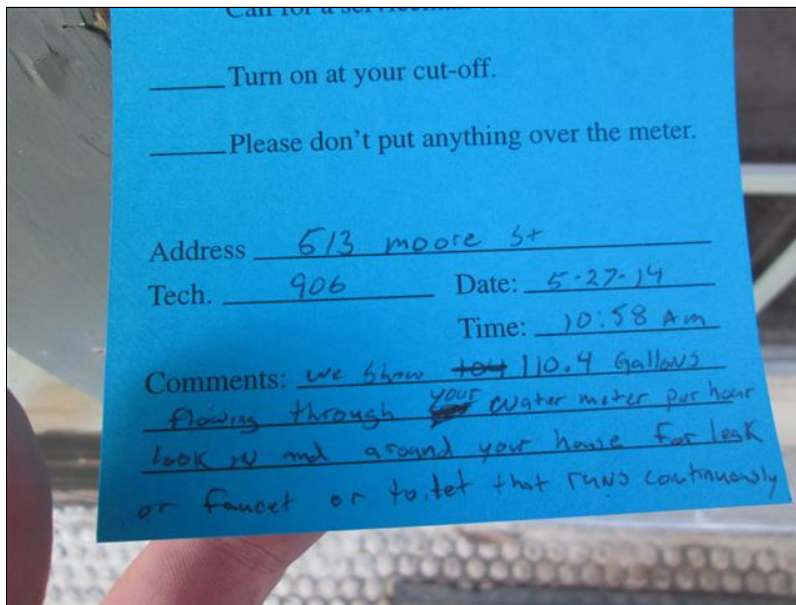 Call for a serviceman
_____ Turn on at your cut-off.
_____ Please don't put anything over the meter.
Address 513 moore St
Tech. 906 Date: 5-27-14
Time: 10:58 Am
Comments: we show 110.4 Gallons
flowing through your water meter pur hour
look in and around your house for leak
or faucet or toilet that runs continuously